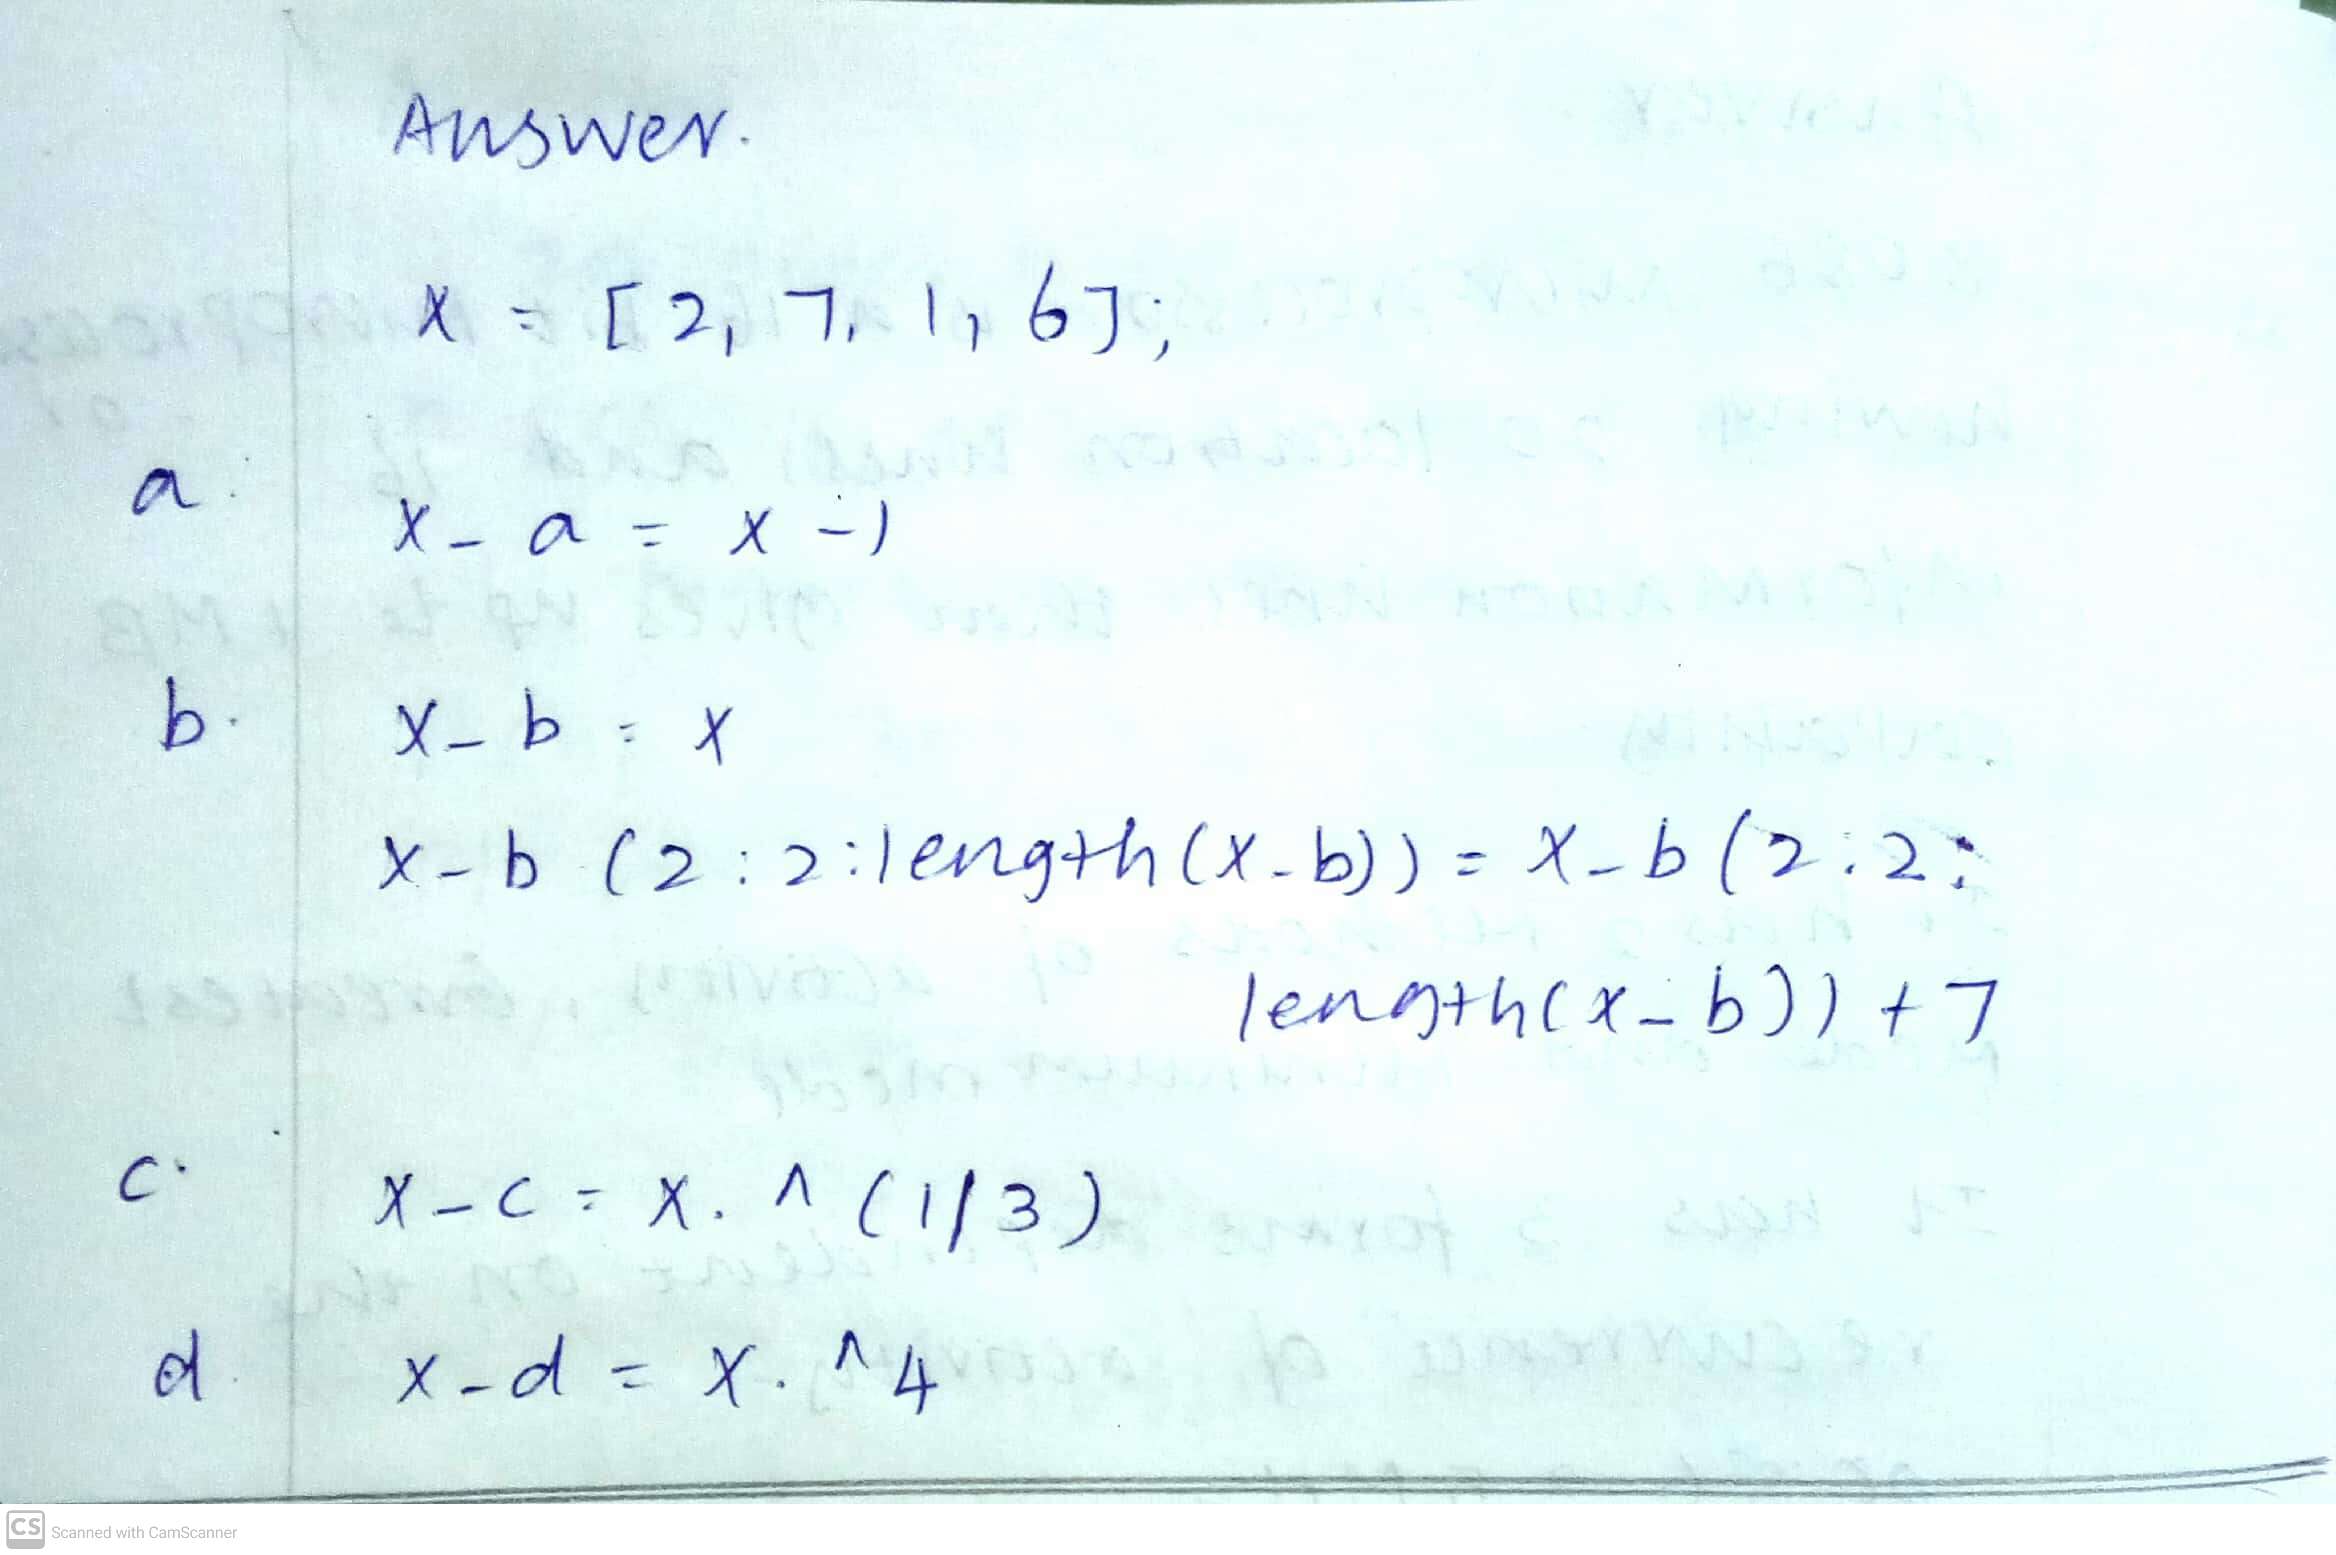 Answer.
x = [2, 7, 1, 6];
a. x_a = x-1
b. x_b = x
x_b (2:2:length(x_b)) = x_b(2:2:
length(x_b)) + 7
c. x_c = x.^(1/3)
d. x_d = x.^4
CS Scanned with CamScanner